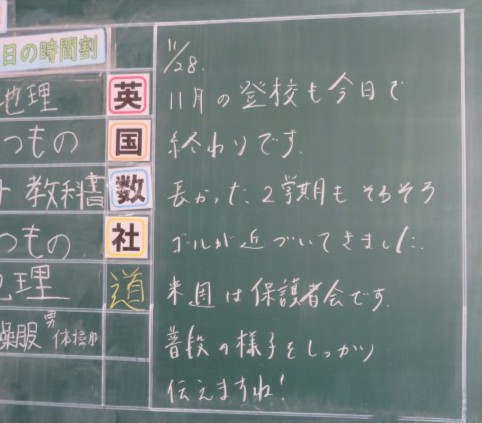 日の時間割
地理 英
つもの 国
教科書 数
つもの 社
理 道
操服 男 体培部
11/28.
11月の登校も今日で
終わりです.
長かった2学期もそろそろ
ゴールが近づいてきました.
来週は保護者会です.
普段の様子をしっかり
伝えますね!